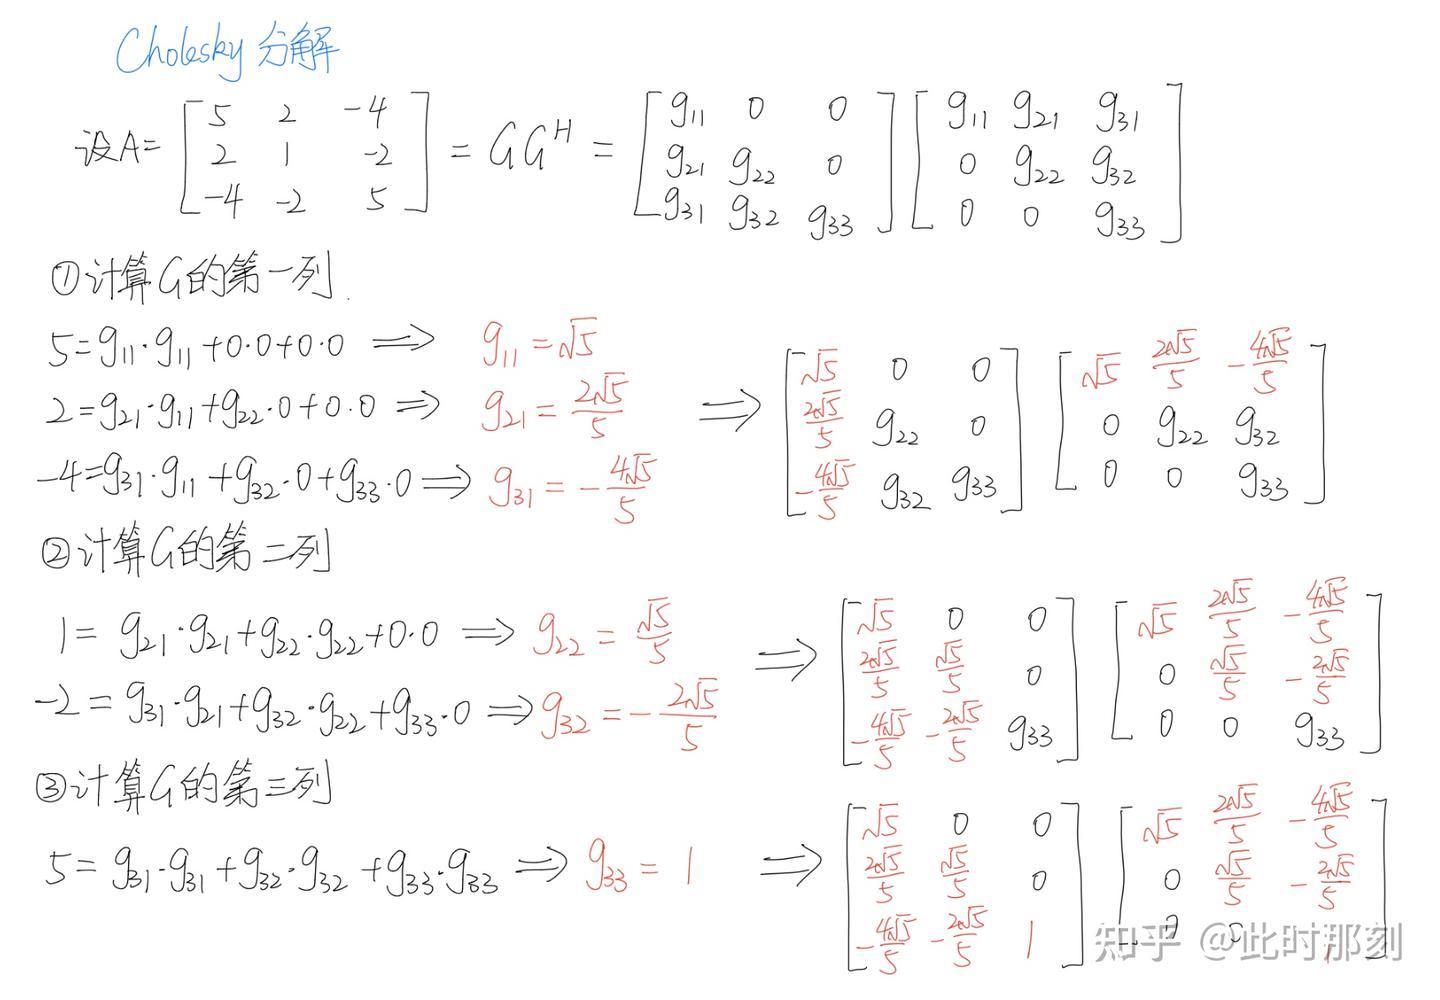 Cholesky 分解
设A= [5 2 -4; 2 1 -2; -4 -2 5] = GG^H = [g₁₁ 0 0; g₂₁ g₂₂ 0; g₃₁ g₃₂ g₃₃] [g₁₁ g₂₁ g₃₁; 0 g₂₂ g₃₂; 0 0 g₃₃]
①计算G的第一列
5=g₁₁·g₁₁+0·0+0·0 ⇒ g₁₁=√5
2=g₂₁·g₁₁+g₂₂·0+0·0 ⇒ g₂₁=2√5/5
-4=g₃₁·g₁₁+g₃₂·0+g₃₃·0 ⇒ g₃₁=-4√5/5
⇒ [√5 0 0; 2√5/5 g₂₂ 0; -4√5/5 g₃₂ g₃₃] [√5 2√5/5 -4√5/5; 0 g₂₂ g₃₂; 0 0 g₃₃]
②计算G的第二列
1=g₂₁·g₂₁+g₂₂·g₂₂+0·0 ⇒ g₂₂=√5/5
-2=g₃₁·g₂₁+g₃₂·g₂₂+g₃₃·0 ⇒ g₃₂=-2√5/5
⇒ [√5 0 0; 2√5/5 √5/5 0; -4√5/5 -2√5/5 g₃₃] [√5 2√5/5 -4√5/5; 0 √5/5 -2√5/5; 0 0 g₃₃]
③计算G的第三列
5=g₃₁·g₃₁+g₃₂·g₃₂+g₃₃·g₃₃ ⇒ g₃₃=1
⇒ [√5 0 0; 2√5/5 √5/5 0; -4√5/5 -2√5/5 1] [√5 2√5/5 -4√5/5; 0 √5/5 -2√5/5; 0 0 1]
知乎 @此时那刻